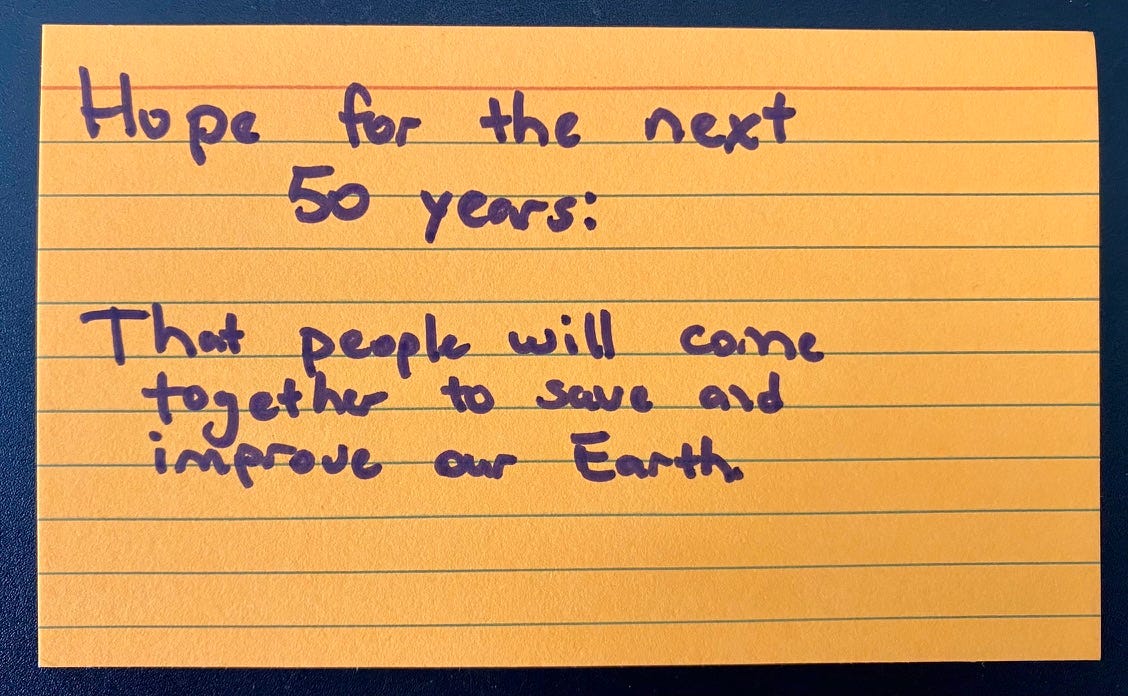 Hope for the next
50 years:
That people will come
together to save and
improve our Earth.